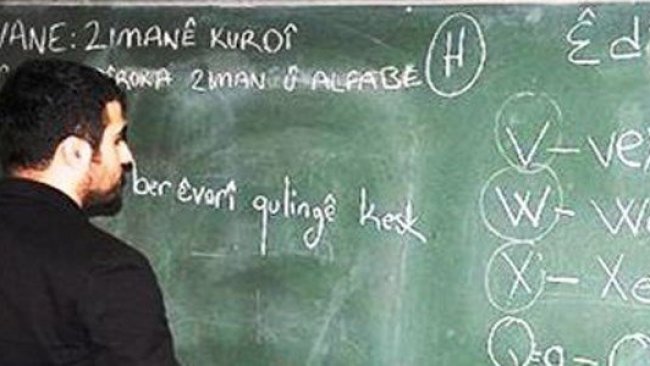 VANE: ZIMANÊ KURDÎ
ÎROKA ZIMAN Û ALFABE
H
Ê d
ber êvarî qulingê kesk
V - vex
W - We
X - Xe
Q